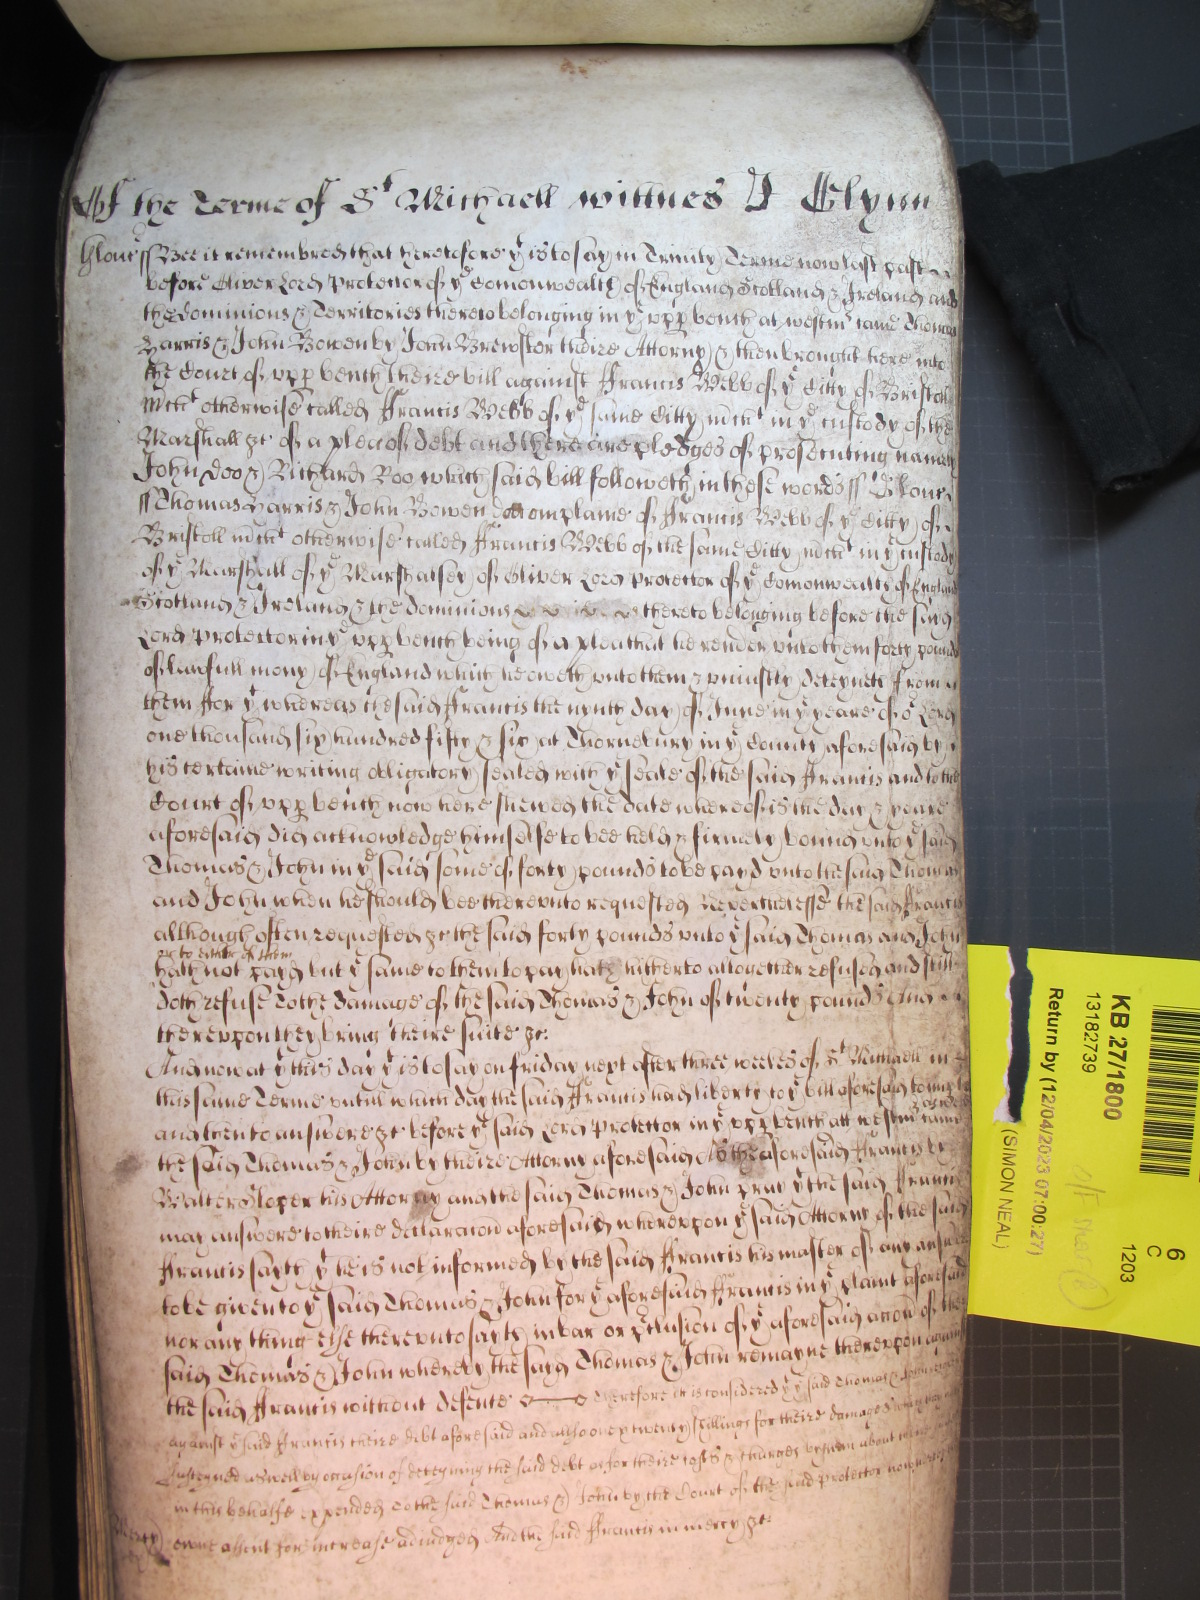 Of the Terme of St Michaell wittnes J Glynn
Glouc ss Bee it remembred that heretofore yt is to say in Trinity Terme now last past
before Oliver Lord Protector of ye Comonwealth of England Scotland & Ireland and
the Dominions & Territories thereto belonging in ye upp bench at westmr came Thomas
Harris & John Bowen by John Brewster theire Attorny & then brought here into
the Court of upp bench theire bill against Francis Webb of ye Citty of Bristoll
mcht otherwise called Francis Webb of ye same Citty mcht in ye custody of the
Marshall &c of a plea of debt and there are pledges of prosecuting namely
John Doo & Richard Roo which said bill followeth in these words ss Glouc
ss Thomas Harris & John Bowen complaine of Francis Webb of ye Citty of
Bristoll mcht otherwise called Francis Webb of the same Citty mcht in ye custody
of ye Marshall of ye Marshalsey of Oliver Lord Protector of ye Comonwealth of England
Scotland & Ireland & the dominions thereto belonging before the said
Lord Protector in ye upp bench being of a plea that he render unto them forty pounds
of lawfull mony of England which he oweth unto them & uniustly deteyneth from
them For yt whereas the said Francis the nynth day of June in ye yeare of or Lord
one thousand six hundred fifty & six at Thornebury in ye County aforesaid by
his certaine writing obligatory sealed with ye seale of the said Francis and to the
Court of upp bench now here shewed the date whereof is the day & yeare
aforesaid did acknowledge himselfe to bee held & firmely bound unto ye said
Thomas & John in ye said some of forty pounds to be payd unto the said Thomas
and John when he should bee thereunto requested Neverthelesse the said Francis
although often requested &c the said forty pounds unto ye said Thomas and John
or to either of them
hath not payd but ye same to them to pay hath hitherto altogether refused and still
doth refuse To the damage of the said Thomas & John of twenty pounds And
thereupon they bring theire suite &c.
And now at this day yt is to say on Friday next after three weekes of St Michaell in
this same Terme untill which day the said Francis had liberty to ye bill aforesaid to imparle
and then to answere &c before ye said Lord Protector in ye upp bench att westmr came
as well
the said Thomas & John by theire Attorny aforesaid As the aforesaid Francis by
Walter Sloper his Attorny and the said Thomas & John pray yt the said Francis
may answere to theire declaracon aforesaid whereupon ye said Attorny of the said
Francis sayth yt he is not informed by the said Francis his master of any answere
to be given to ye said Thomas & John for ye aforesaid Francis in ye plaint aforesaid
nor any thing else thereunto sayth in bar or pclusion of ye aforesaid accon of the
said Thomas & John whereby the said Thomas & John remayne thereupon against
the said Francis without defence Therefore it is considered yt ye said Thomas & John
against ye said Francis theire debt aforesaid and also one & twenty shillings for theire damages which
susteyned aswell by occasion of deteyning the said debt as for theire costs & charges by them about theire
in this behalfe expended to the said Thomas & John by the Court of the said Protector now here
owne assent for increase adiudged And the said Francis in mercy &c
Mercy
KB 27/1800
13182739
Return by (12/04/2023 07:00:27)
(SIMON NEAL)
6
C
1203